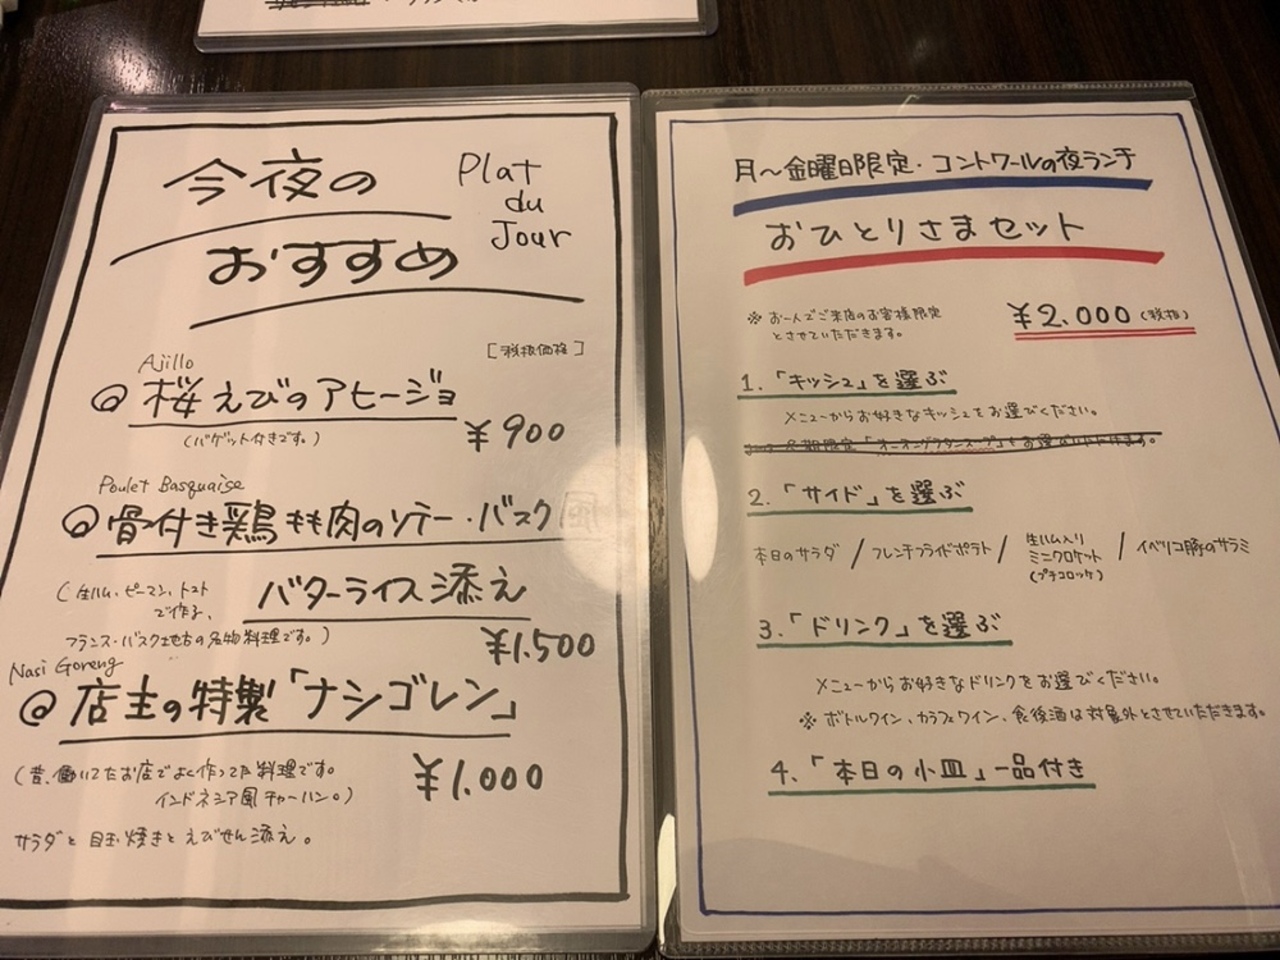 今夜の
おすすめ
Plat
du
Jour
[税抜価格]
Ajillo
@ 桜えびのアヒージョ
(バゲット付きです。)
¥900
Poulet Basquaise
@ 骨付き鶏もも肉のソテー・バスク風
バターライス添え
(生ハム、ピーマン、トマト
で作る、
フランス・バスク地方の名物料理です。)
¥1.500
Nasi Goreng
@ 店主の特製「ナシゴレン」
(昔、働いてたお店でよく作ってた料理です。
インドネシア風チャーハン。)
¥1.000
サラダと目玉焼きとえびせん添え。
月〜金曜日限定・コントワールの夜ランチ
おひとりさまセット
※お一人でご来店のお客様限定
とさせていただきます。
¥2.000(税抜)
1.「キッシュ」を選ぶ
メニューからお好きなキッシュをお選びください。
2.「サイド」を選ぶ
本日のサラダ / フレンチフライドポテト / 生ハム入りミニクロケット(プチコロッケ) / イベリコ豚のサラミ
3.「ドリンク」を選ぶ
メニューからお好きなドリンクをお選びください。
※ボトルワイン、カラフェワイン、食後酒は対象外とさせていただきます。
4.「本日の小皿」一品付き